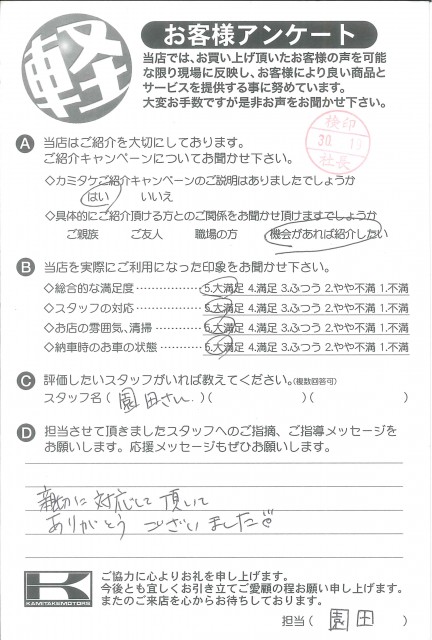 軽
お客様アンケート
当店では、お買い上げ頂いたお客様の声を可能
な限り現場に反映し、お客様により良い商品と
サービスを提供する事に努めています。
大変お手数ですが是非お声をお聞かせ下さい。
検印
30.
社長
A 当店はご紹介を大切にしております。
ご紹介キャンペーンについてお聞かせ下さい。
◇カミタケご紹介キャンペーンのご説明はありましたでしょうか
はい いいえ
◇具体的にご紹介頂ける方とのご関係をお聞かせ頂けますでしょうか
ご親族 ご友人 職場の方 機会があれば紹介したい
B 当店を実際にご利用になった印象をお聞かせ下さい。
◇総合的な満足度……………5.大満足 4.満足 3.ふつう 2.やや不満 1.不満
◇スタッフの対応……………5.大満足 4.満足 3.ふつう 2.やや不満 1.不満
◇お店の雰囲気、清掃………5.大満足 4.満足 3.ふつう 2.やや不満 1.不満
◇納車時のお車の状態………5.大満足 4.満足 3.ふつう 2.やや不満 1.不満
C 評価したいスタッフがいれば教えてください。(複数回答可)
スタッフ名(園田さん.)( )( )
D 担当させて頂きましたスタッフへのご指摘、ご指導メッセージを
お願いします。応援メッセージもぜひお願いします。
親切に対応して頂いて
ありがとうございました
K
KAMITAKEMOTORS
ご協力に心よりお礼を申し上げます。
今後とも宜しくお引き立てご愛顧の程お願い申し上げます。
またのご来店を心からお待ちしております。
担当(園田)